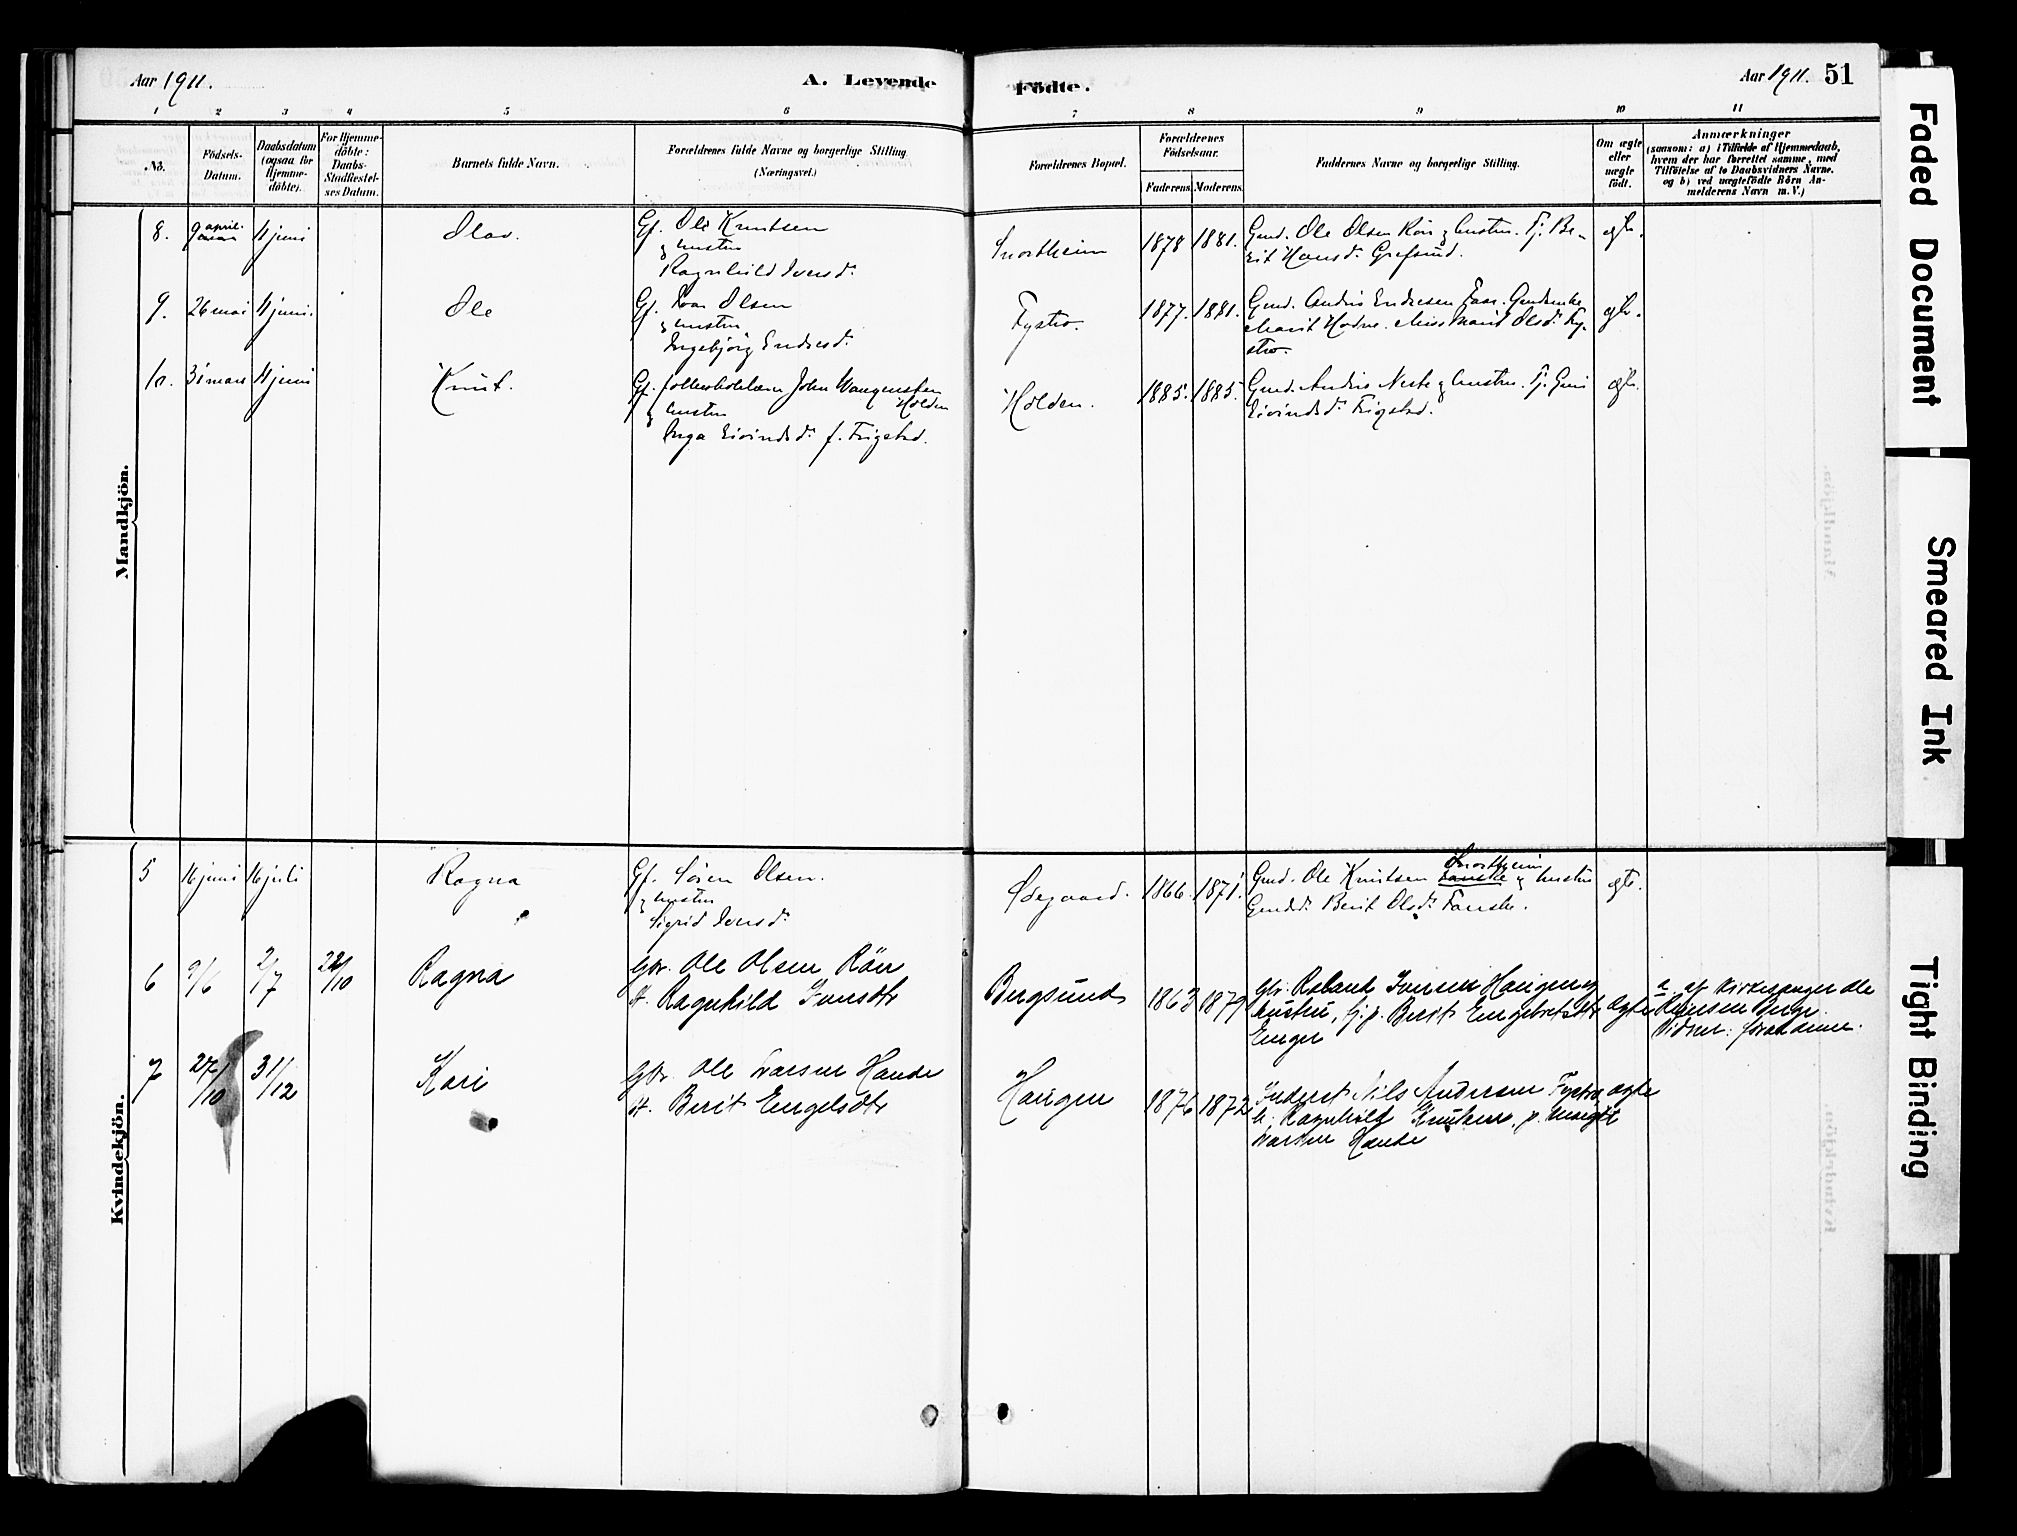 Aar 1911.
A. Levende
Födte.
Aar 1911. 51
1 2 3 4 5 6 7 8 9 10 11
No.
Födsels-
Datum.
Daabsdatum
(ogsaa for
Hjemme-
döbte).
For Hjemme-
döbte:
Daabs-
Stadfæstel-
ses Datum.
Barnets fulde Navn.
Forældrenes fulde Navne og borgerlige Stilling
(Næringsvei.)
Forældrenes Bopæl.
Forældrenes
Födselsaar.
Faderens. Moderens.
Faddernes Navne og borgerlige Stilling.
Om ægte
eller
uægte
födt.
Anmærkninger
(saasom: a) i Tilfælde af Hjemmedaab,
hvem der har forrettet samme, med
Tilföielse af to Daabsvidners Navne.
og b) ved uægtefödte Börn An-
melderens Navn m. V.)
Mandkjön.
8. 9 april 11 juni Olav. Gf. Ole Knutsen
hustru
Ragnhild Iversd.
Snortheim 1878 1881. Gmd. Ole Olsen Rön og hustru. Tj. Be-
rit Hansd. Grefsrud.
9. 26 mai 11 juni. Ole Gf. Ivar Olsen
hustru
Ingebjörg Endresd.
Fystro. 1877. 1881. Gmd. Andris Endresen
Marit Marit Olsd. Fy-
stro.
10. 31 mars 11 juni Knut. Gf. John Wangensten
Holden
hustru
Inga Eivindsd. f. Frigstad.
Holden. 1885. 1885. Gmd. Andris Neste og hustru. Tj.
Eivindsd. Frigstad.
Kvindekjön.
5 16 juni 16 juli Ragna Gf. Sören Olsen.
hustru
Sigrid Iversd.
Ödegaard. 1866. 1871. Gmd. Ole Knutsen Snortheim og hustru
Berit Olsd.
6 9/6 2/7 22/10 Ragna Gbr. Ole Olsen Rön
H. Ragnhild Iversdtr
Bergsund 1863 1879 Gbr. Roland Iversen Haugen og
hustru, Berit Engebretsdtr
Enger
ægte
a. af kirkesanger Ole
Reiersen Berge.
Vidner: forældrene.
7 27/10 31/12 Kari Gbr. Ole Ivarsen Hande
H. Berit Engelsdtr
Haugen 1876 1872 Nils Andersen Fystro
Ragnhild Knutsen, p. Margit
Ivarsen Hande
ægte
Faded Document
Smeared Ink
Tight Binding